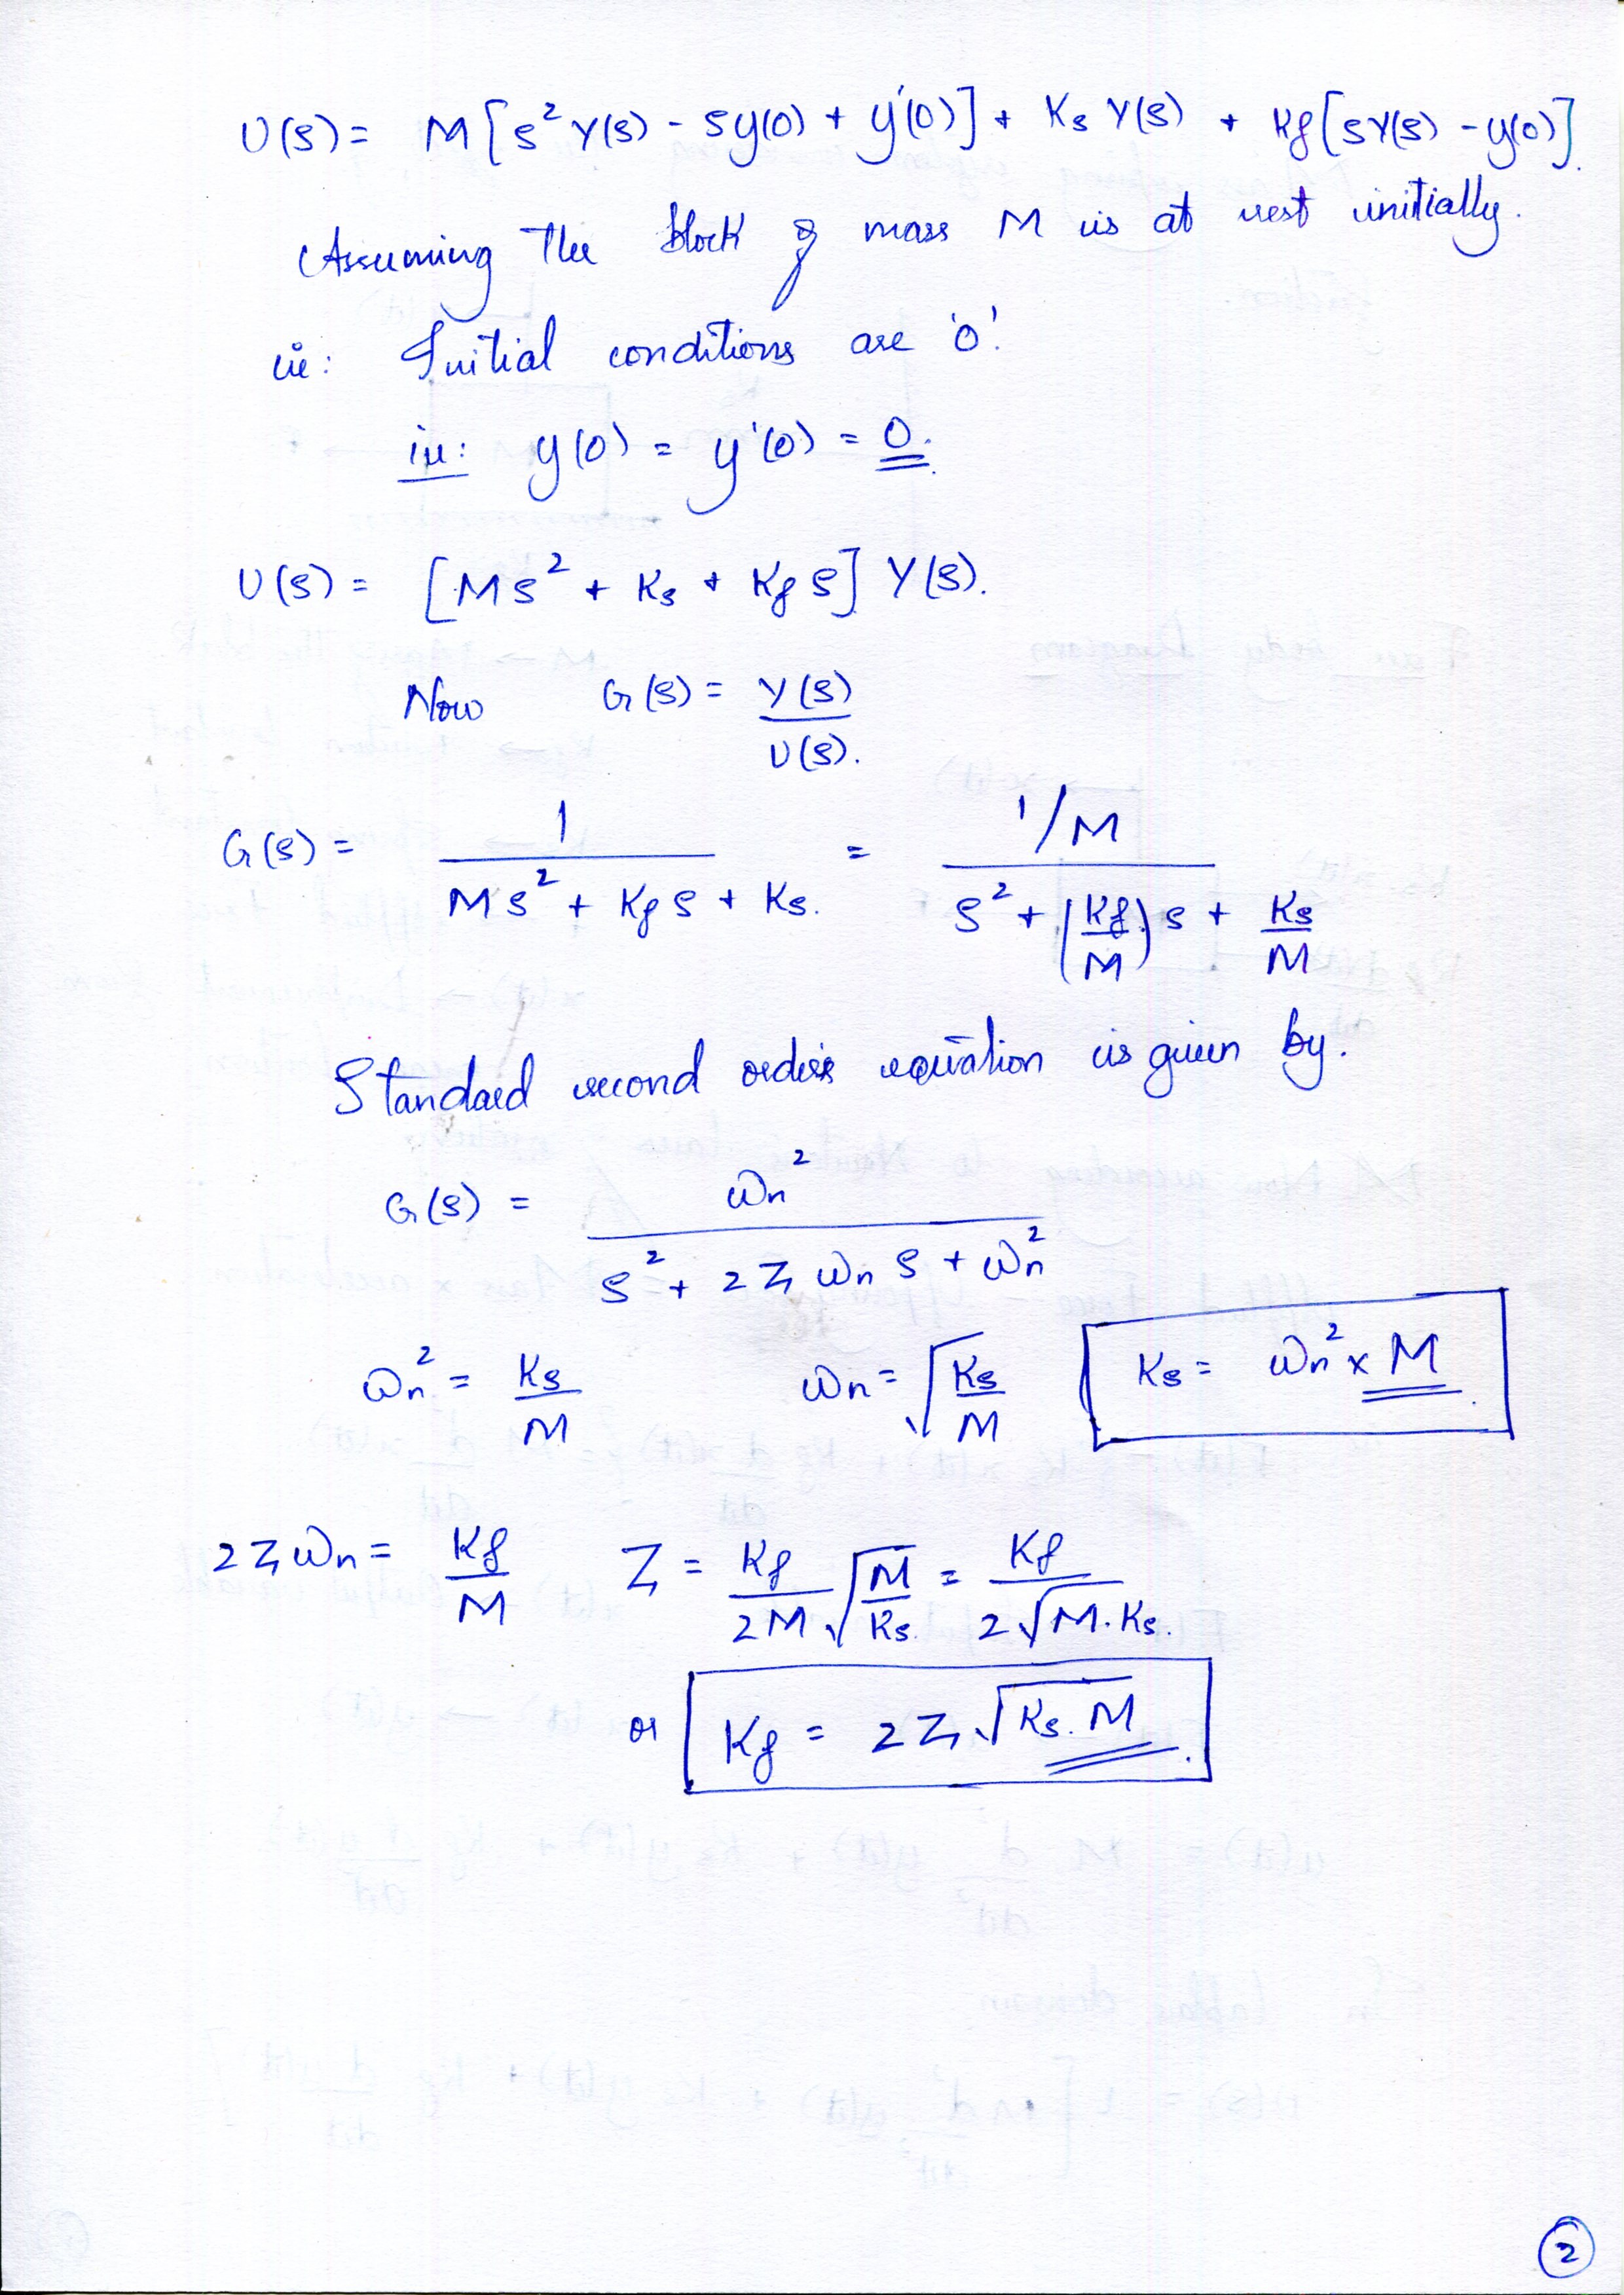 U(s) = M[s² Y(s) - sy(0) + y'(0)] + Ks Y(s) + Kf[sY(s) - y(0)].
Assuming The block of mass M is at rest initially.
ie: Initial conditions are '0'.
ie: y(0) = y'(0) = 0.
U(s) = [Ms² + Ks + Kf s] Y(s).
Now G(s) = Y(s) / U(s).
G(s) = 1 / (Ms² + Kf s + Ks.) = (1/M) / (s² + (Kf/M) s + Ks/M)
Standard second order equation is given by.
G(s) = ωn² / (s² + 2Z ωn s + ωn²)
ωn² = Ks/M ωn = √(Ks/M) Ks = ωn² x M.
2Zωn = Kf/M Z = Kf/2M √(M/Ks) = Kf / 2√(M.Ks).
or Kf = 2Z√(Ks.M).
2